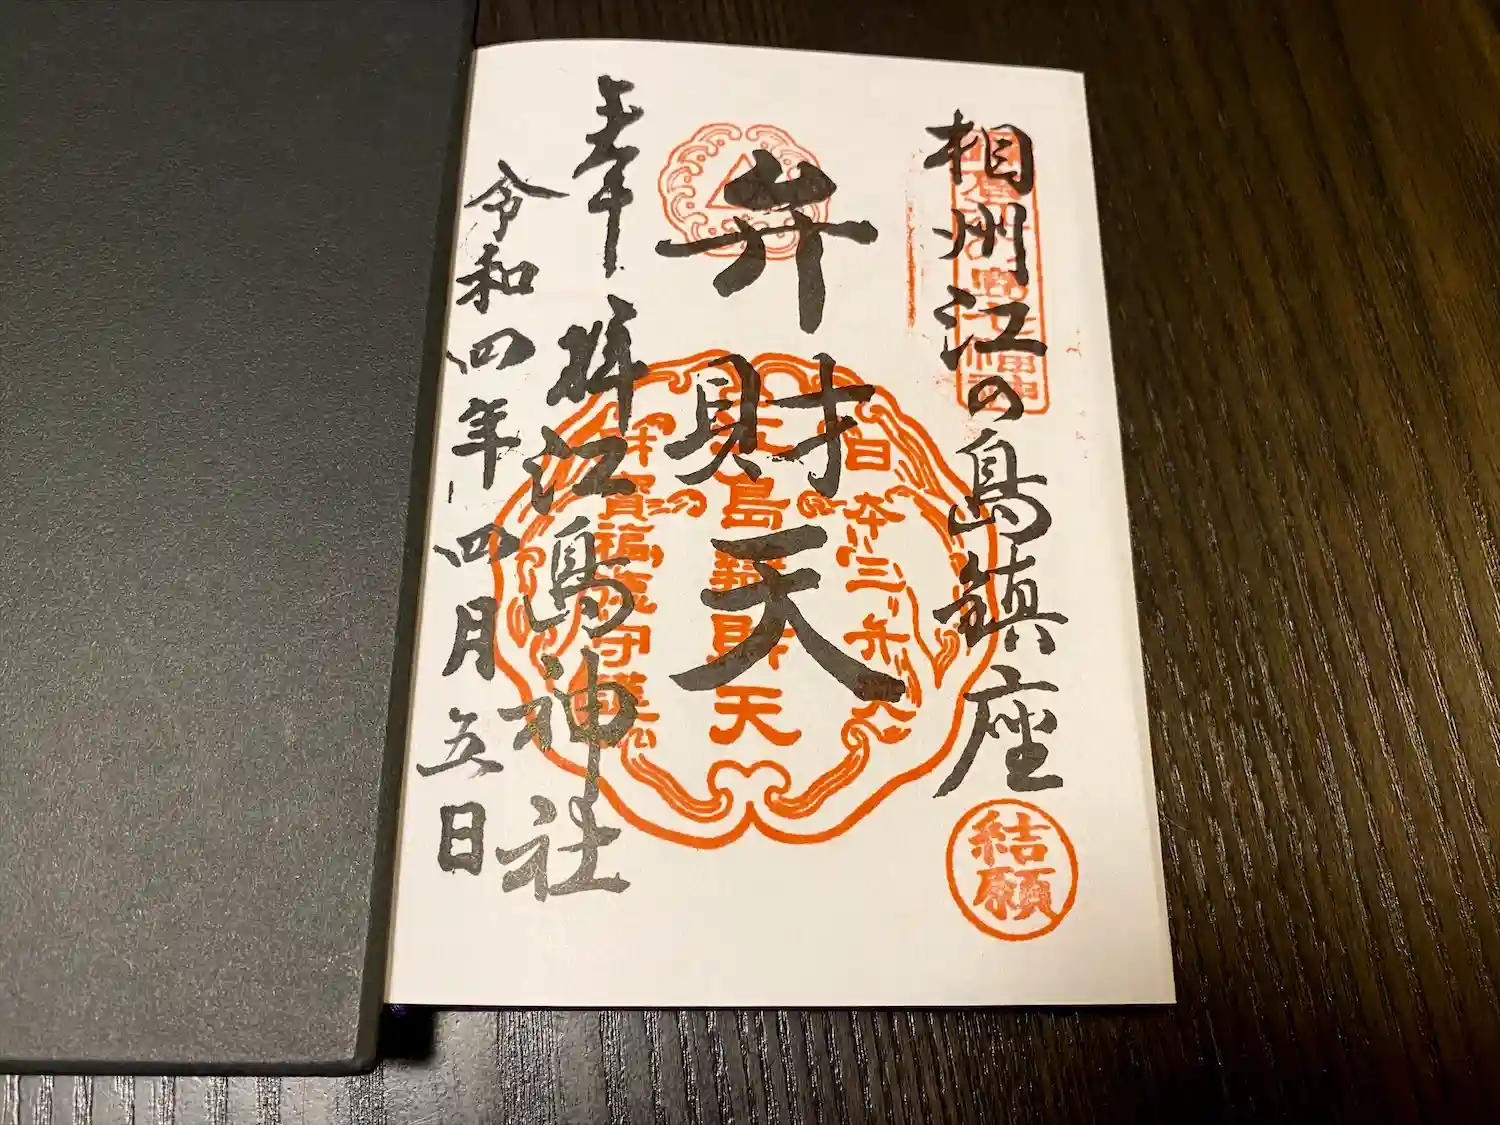 相州江の島鎮座
弁財天
奉拝 江島神社
令和四年四月五日
日本三弁天
江島辨財天
財寶福徳守護
結願